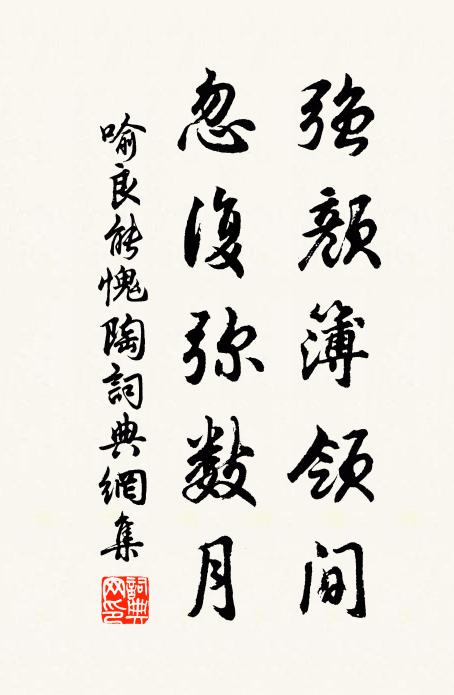 强颜簿领间
忽复弥数月
喻良能愧陶詞典網集
詞典網印